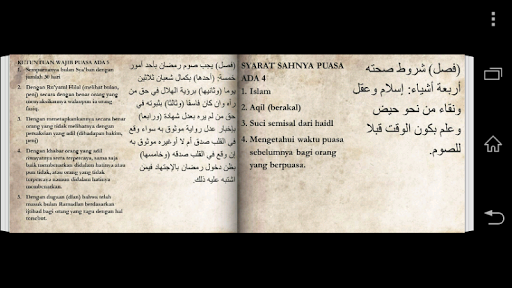 KETENTUAN WAJIB PUASA ADA 5
1. Sempurnanya bulan Sya'ban dengan
jumlah 30 hari
2. Dengan Ru'yatul Hilal (melihat bulan,
(pen) secara dengan benar orang yang
menyaksikannya walaupun ia orang
fasiq.
3. Dengan menetapkannya secara benar
orang yang tidak melihatnya dengan
persaksian yang adil (dihadapan hakim,
pen)
4. Dengan khabar orang yang adil
riwayatnya serta terpercaya, sama saja
baik menumbuhkan didalam hatinya atau
pun tidak, atau orang yang tidak
terpercaya namun didalam hatinya
membenarkan.
5. Dengan dugaan (dlan) bahwa telah
masuk bulan Ramadlan berdasarkan
ijtihad bagi orang yang ragu dengan hal
tersebut.
(فصل) يجب صوم رمضان بأحد أمور
خمسة: (أحدها) بكمال شعبان ثلاثين
يوما (وثانيها) برؤية الهلال في حق من
رآه وإن كان فاسقا (وثالثها) بثبوته في
حق من لم يره بعدل شهادة (ورابعها)
بإخبار عدل رواية موثوق به سواء وقع
في القلب صدقه أم لا أوغيره موثوق به
إن وقع في القلب صدقه (وخامسها)
بظن دخول رمضان بالإجتهاد فيمن
اشتبه عليه ذلك.
SYARAT SAHNYA PUASA
ADA 4
1. Islam
2. Aqil (berakal)
3. Suci semisal dari haidl
4. Mengetahui waktu puasa
sebelumnya bagi orang
yang berpuasa.
(فصل) شروط صحته
أربعة أشياء: إسلام وعقل
ونقاء من نحو حيض
وعلم بكون الوقت قبلا
للصوم.